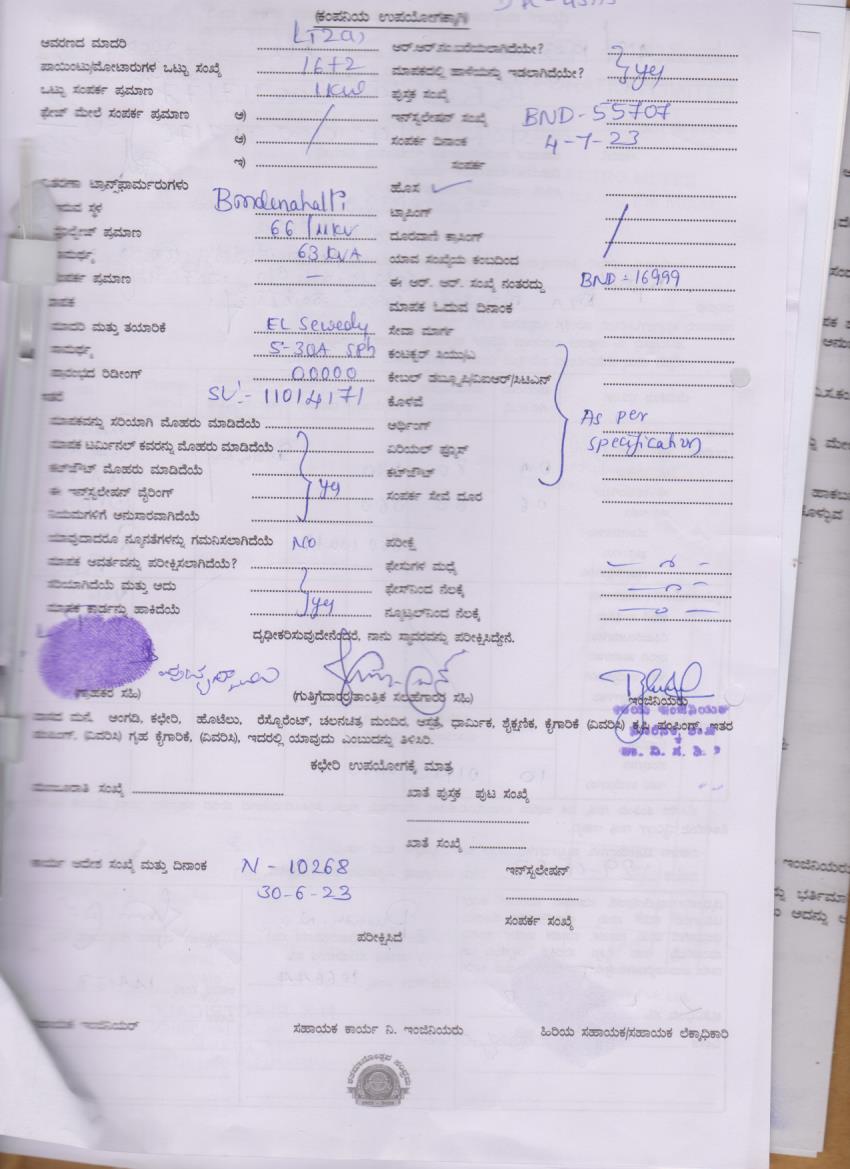 (ಕಂಪನಿಯ ಉಪಯೋಗಕ್ಕಾಗಿ)
ಆವರಣದ ಮಾದರಿ LT2a) ಆರ್.ಆರ್.ನಂ.ಬರೆಯಲಾಗಿದೆಯೇ?
ಪಾಯಿಂಟು/ಮೋಟಾರುಗಳ ಒಟ್ಟು ಸಂಖ್ಯೆ 16+2 ಮಾಪಕದಲ್ಲಿ ಹಾಳೆಯನ್ನು ಇಡಲಾಗಿದೆಯೇ? yes
ಒಟ್ಟು ಸಂಪರ್ಕ ಪ್ರಮಾಣ 1KW ಪುಸ್ತಕ ಸಂಖ್ಯೆ
ಫೇಜ್ ಮೇಲೆ ಸಂಪರ್ಕ ಪ್ರಮಾಣ ಅ) ಇನ್‌ಸ್ಟಲೇಷನ್ ಸಂಖ್ಯೆ BND-55707
ಆ) ಸಂಪರ್ಕ ದಿನಾಂಕ 4-7-23
ಇ) ಸಂಪರ್ಕ
ಟ್ರಾನ್ಸ್‌ಫಾರ್ಮರುಗಳು ಹೊಸ ✓
ಸ್ಥಳ Bondenahalli ಟ್ಯಾಪಿಂಗ್
ಪ್ರಮಾಣ 66/11KV ದೂರವಾಣಿ ಕ್ರಾಸಿಂಗ್
63 KVA ಯಾವ ಸಂಖ್ಯೆಯ ಕಂಬದಿಂದ
ಪ್ರಮಾಣ — ಈ ಆರ್. ಆರ್. ಸಂಖ್ಯೆ ನಂತರದ್ದು BND-16999
ಮಾಪಕ ಓದುವ ದಿನಾಂಕ
ಮಾದರಿ ಮತ್ತು ತಯಾರಿಕೆ EL Sewedy ಸೇವಾ ಮಾರ್ಗ
5-30A sph ಕಂಟಕ್ಟರ್ ಸಿಯು/ಎ
ಪ್ರಾರಂಭದ ರಿಡೀಂಗ್ 00000 ಕೇಬಲ್ ಡಬ್ಲ್ಯೂಪಿ/ವಿಐಆರ್/ಸಿಟಿಎನ್
SL:- 11014171 ಕೊಳವೆ
ಮಾಪಕವನ್ನು ಸರಿಯಾಗಿ ಮೊಹರು ಮಾಡಿದೆಯೆ ಅರ್ಥಿಂಗ್ As per
ಮಾಪಕ ಟರ್ಮಿನಲ್ ಕವರನ್ನು ಮೊಹರು ಮಾಡಿದೆಯೆ ಏರಿಯಲ್ ಫ್ಯೂಸ್ specification
ಕಟ್‌ಔಟ್ ಮೊಹರು ಮಾಡಿದೆಯೆ ಕಟ್‌ಔಟ್
ಈ ಇನ್‌ಸ್ಟಲೇಷನ್ ವೈರಿಂಗ್ yes ಸಂಪರ್ಕ ಸೇವೆ ದೂರ
ನಿಯಮಗಳಿಗೆ ಅನುಸಾರವಾಗಿದೆಯೆ
ಯಾವುದಾದರೂ ನ್ಯೂನತೆಗಳನ್ನು ಗಮನಿಸಲಾಗಿದೆಯೆ NO ಪರೀಕ್ಷೆ
ಮಾಪಕ ಆವರ್ತವನ್ನು ಪರೀಕ್ಷಿಸಲಾಗಿದೆಯೆ? ಫೇಸುಗಳ ಮಧ್ಯೆ — 0 —
ಸರಿಯಾಗಿದೆಯೆ ಮತ್ತು ಅದು ಫೇಸ್‌ನಿಂದ ನೆಲಕ್ಕೆ — 0 —
ಮಾಪಕ ಕಾರ್ಡನ್ನು ಹಾಕಿದೆಯೆ yes ನ್ಯೂಟ್ರಲ್‌ನಿಂದ ನೆಲಕ್ಕೆ — 0 —
ದೃಢೀಕರಿಸುವುದೇನೆಂದರೆ, ನಾನು ಸ್ಥಾವರವನ್ನು ಪರೀಕ್ಷಿಸಿದ್ದೇನೆ.
(ಗ್ರಾಹಕರ ಸಹಿ) (ಗುತ್ತಿಗೆದಾರರ/ತಾಂತ್ರಿಕ ಸಲಹೆಗಾರರ ಸಹಿ) ಇಂಜಿನಿಯರು
ವಾಸದ ಮನೆ, ಅಂಗಡಿ, ಕಛೇರಿ, ಹೊಟೆಲು, ರೆಸ್ಟೊರೆಂಟ್, ಚಲನಚಿತ್ರ ಮಂದಿರ, ಆಸ್ಪತ್ರೆ, ಧಾರ್ಮಿಕ, ಶೈಕ್ಷಣಿಕ, ಕೈಗಾರಿಕೆ (ವಿವರಿಸಿ) ಕೃಷಿ ಪಂಪಿಂಗ್, ಇತರ
ಪಂಪಿಂಗ್, (ವಿವರಿಸಿ) ಗೃಹ ಕೈಗಾರಿಕೆ, (ವಿವರಿಸಿ), ಇದರಲ್ಲಿ ಯಾವುದು ಎಂಬುದನ್ನು ತಿಳಿಸಿರಿ.
ಕಛೇರಿ ಉಪಯೋಗಕ್ಕೆ ಮಾತ್ರ
ಮಂಜೂರಾತಿ ಸಂಖ್ಯೆ ಖಾತೆ ಪುಸ್ತಕ ಪುಟ ಸಂಖ್ಯೆ
ಖಾತೆ ಸಂಖ್ಯೆ
ಕಾರ್ಯ ಆದೇಶ ಸಂಖ್ಯೆ ಮತ್ತು ದಿನಾಂಕ N-10268 ಇನ್‌ಸ್ಟಲೇಷನ್
30-6-23
ಸಂಪರ್ಕ ಸಂಖ್ಯೆ
ಪರೀಕ್ಷಿಸಿದೆ
ಇಂಜಿನಿಯರ್ ಸಹಾಯಕ ಕಾರ್ಯ ನಿ. ಇಂಜಿನಿಯರು ಹಿರಿಯ ಸಹಾಯಕ/ಸಹಾಯಕ ಲೆಕ್ಕಾಧಿಕಾರಿ